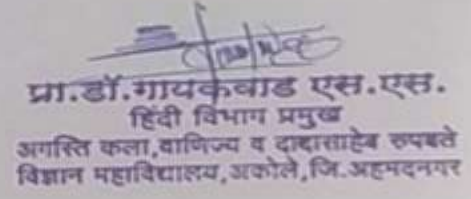 प्रा.डॉ.गायकवाड एस.एस.
हिंदी विभाग प्रमुख
अगस्ति कला,वाणिज्य व दादासाहेब रुपवते
विज्ञान महाविद्यालय,अकोले,जि.अहमदनगर